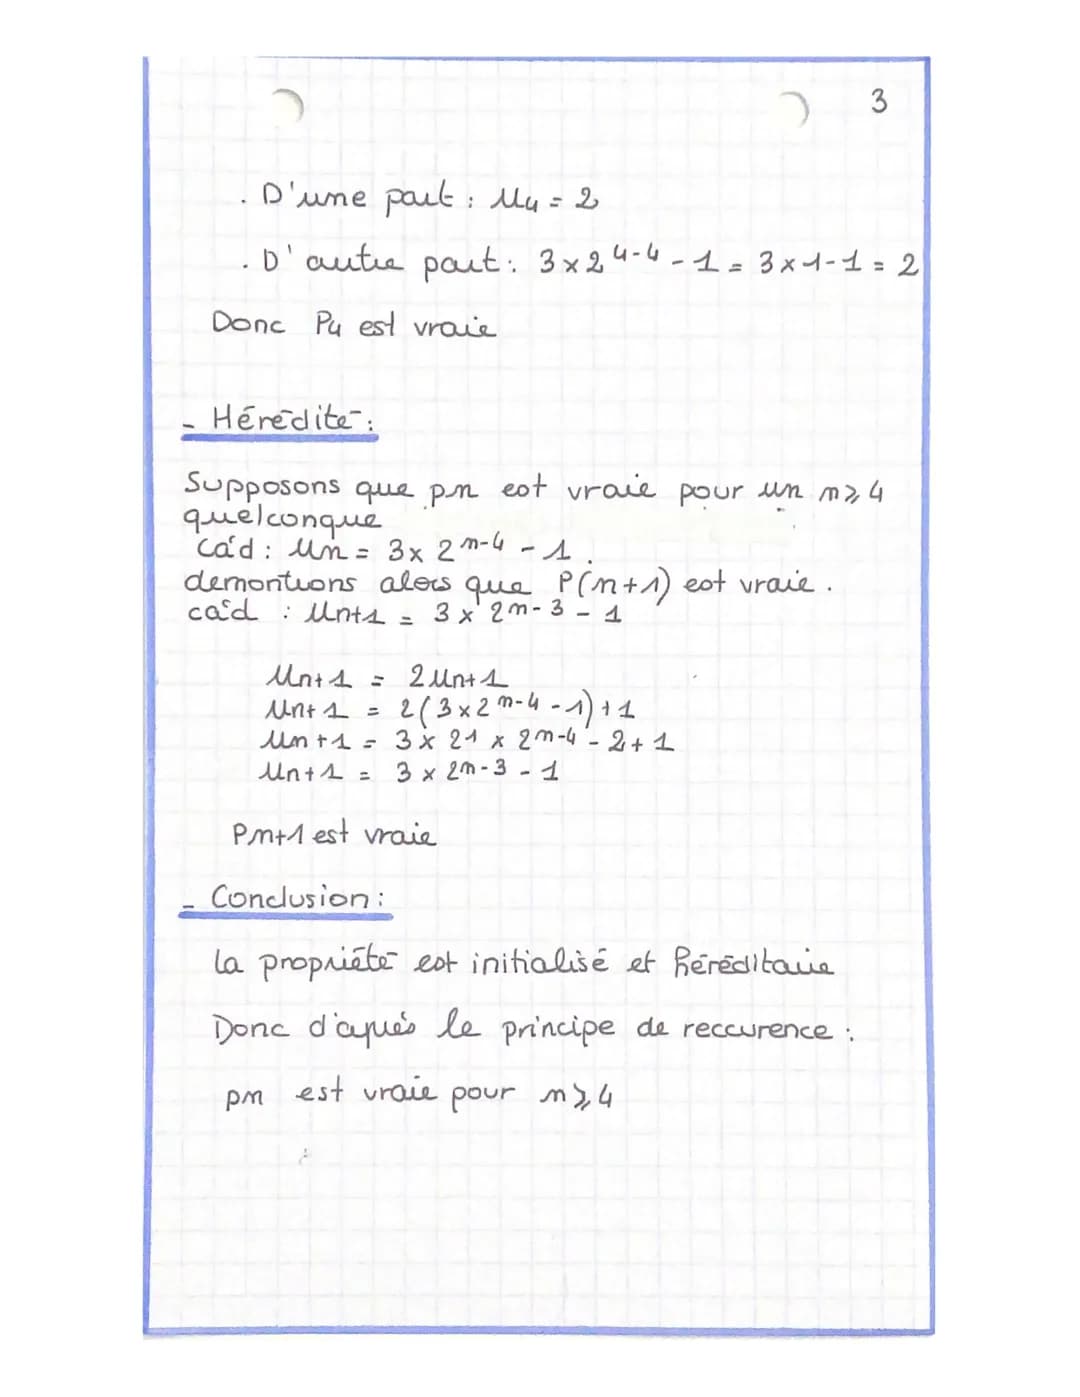 3
. D'une part : U4 = 2
. D'autre part : 3 x 2^4-4 - 1 = 3 x 1 - 1 = 2
Donc P4 est vraie
- Hérédité :
Supposons que pn est vraie pour un n ⩾ 4
quelconque
càd : Un = 3 x 2^n-4 - 1.
demontrons alors que P(n+1) est vraie.
càd : Un+1 = 3 x 2^n-3 - 1
Un+1 = 2Un+1
Un+1 = 2(3 x 2^n-4 - 1) + 1
Un+1 = 3 x 2^1 x 2^n-4 - 2 + 1
Un+1 = 3 x 2^n-3 - 1
Pn+1 est vraie
- Conclusion :
la propriété est initialisé et héréditaire
Donc d'après le principe de reccurence :
pn est vraie pour n ⩾ 4